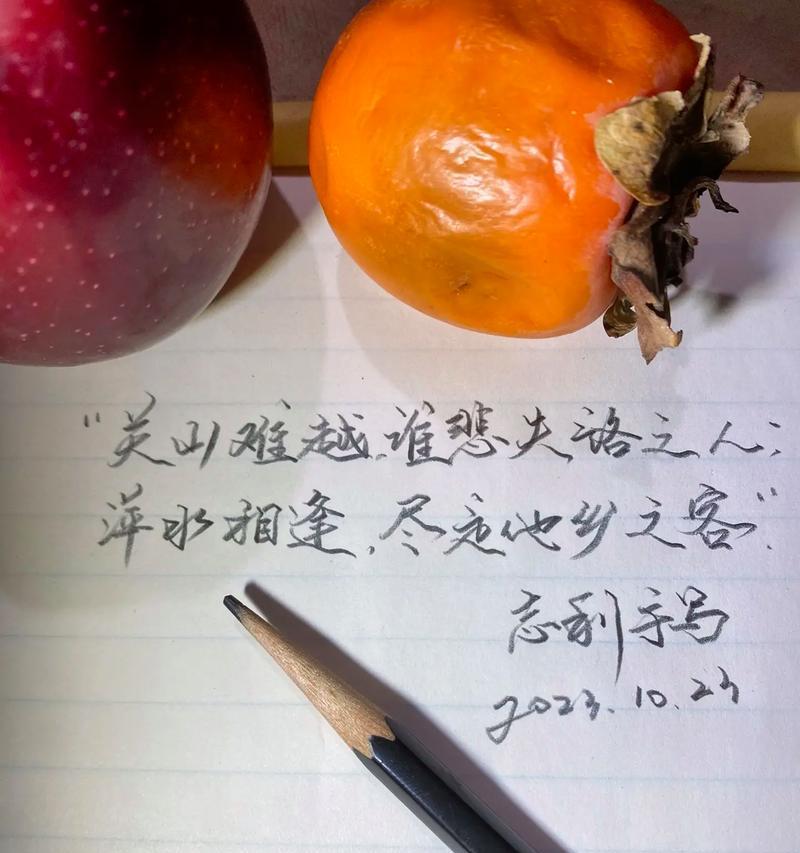 “关山难越,谁悲失路之人;
萍水相逢,尽是他乡之客”.
志利手写
2023.10.24